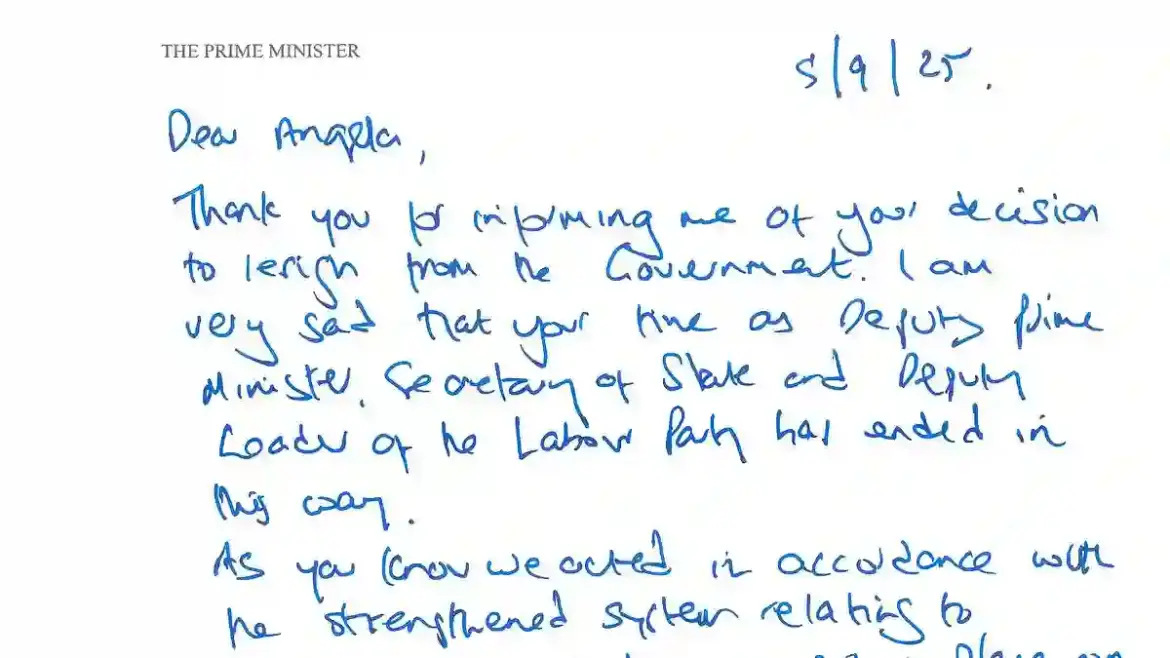 THE PRIME MINISTER
5/9/25.
Dear Angela,
Thank you for informing me of your decision
to resign from the Government. I am
very sad that your time as Deputy Prime
Minister, Secretary of State and Deputy
Leader of the Labour Party has ended in
this way.
As you know we acted in accordance with
the strengthened system relating to